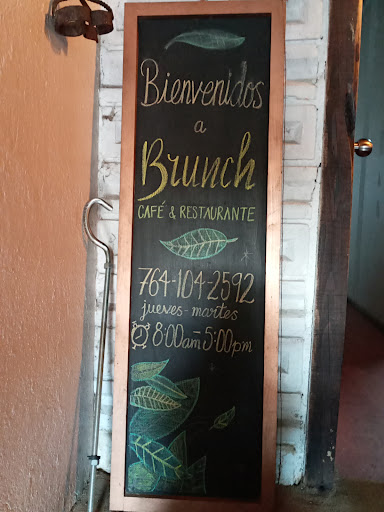 Bienvenidos
a
Brunch
CAFÉ & RESTAURANTE
764-104-2592
jueves-martes
8:00am-5:00pm